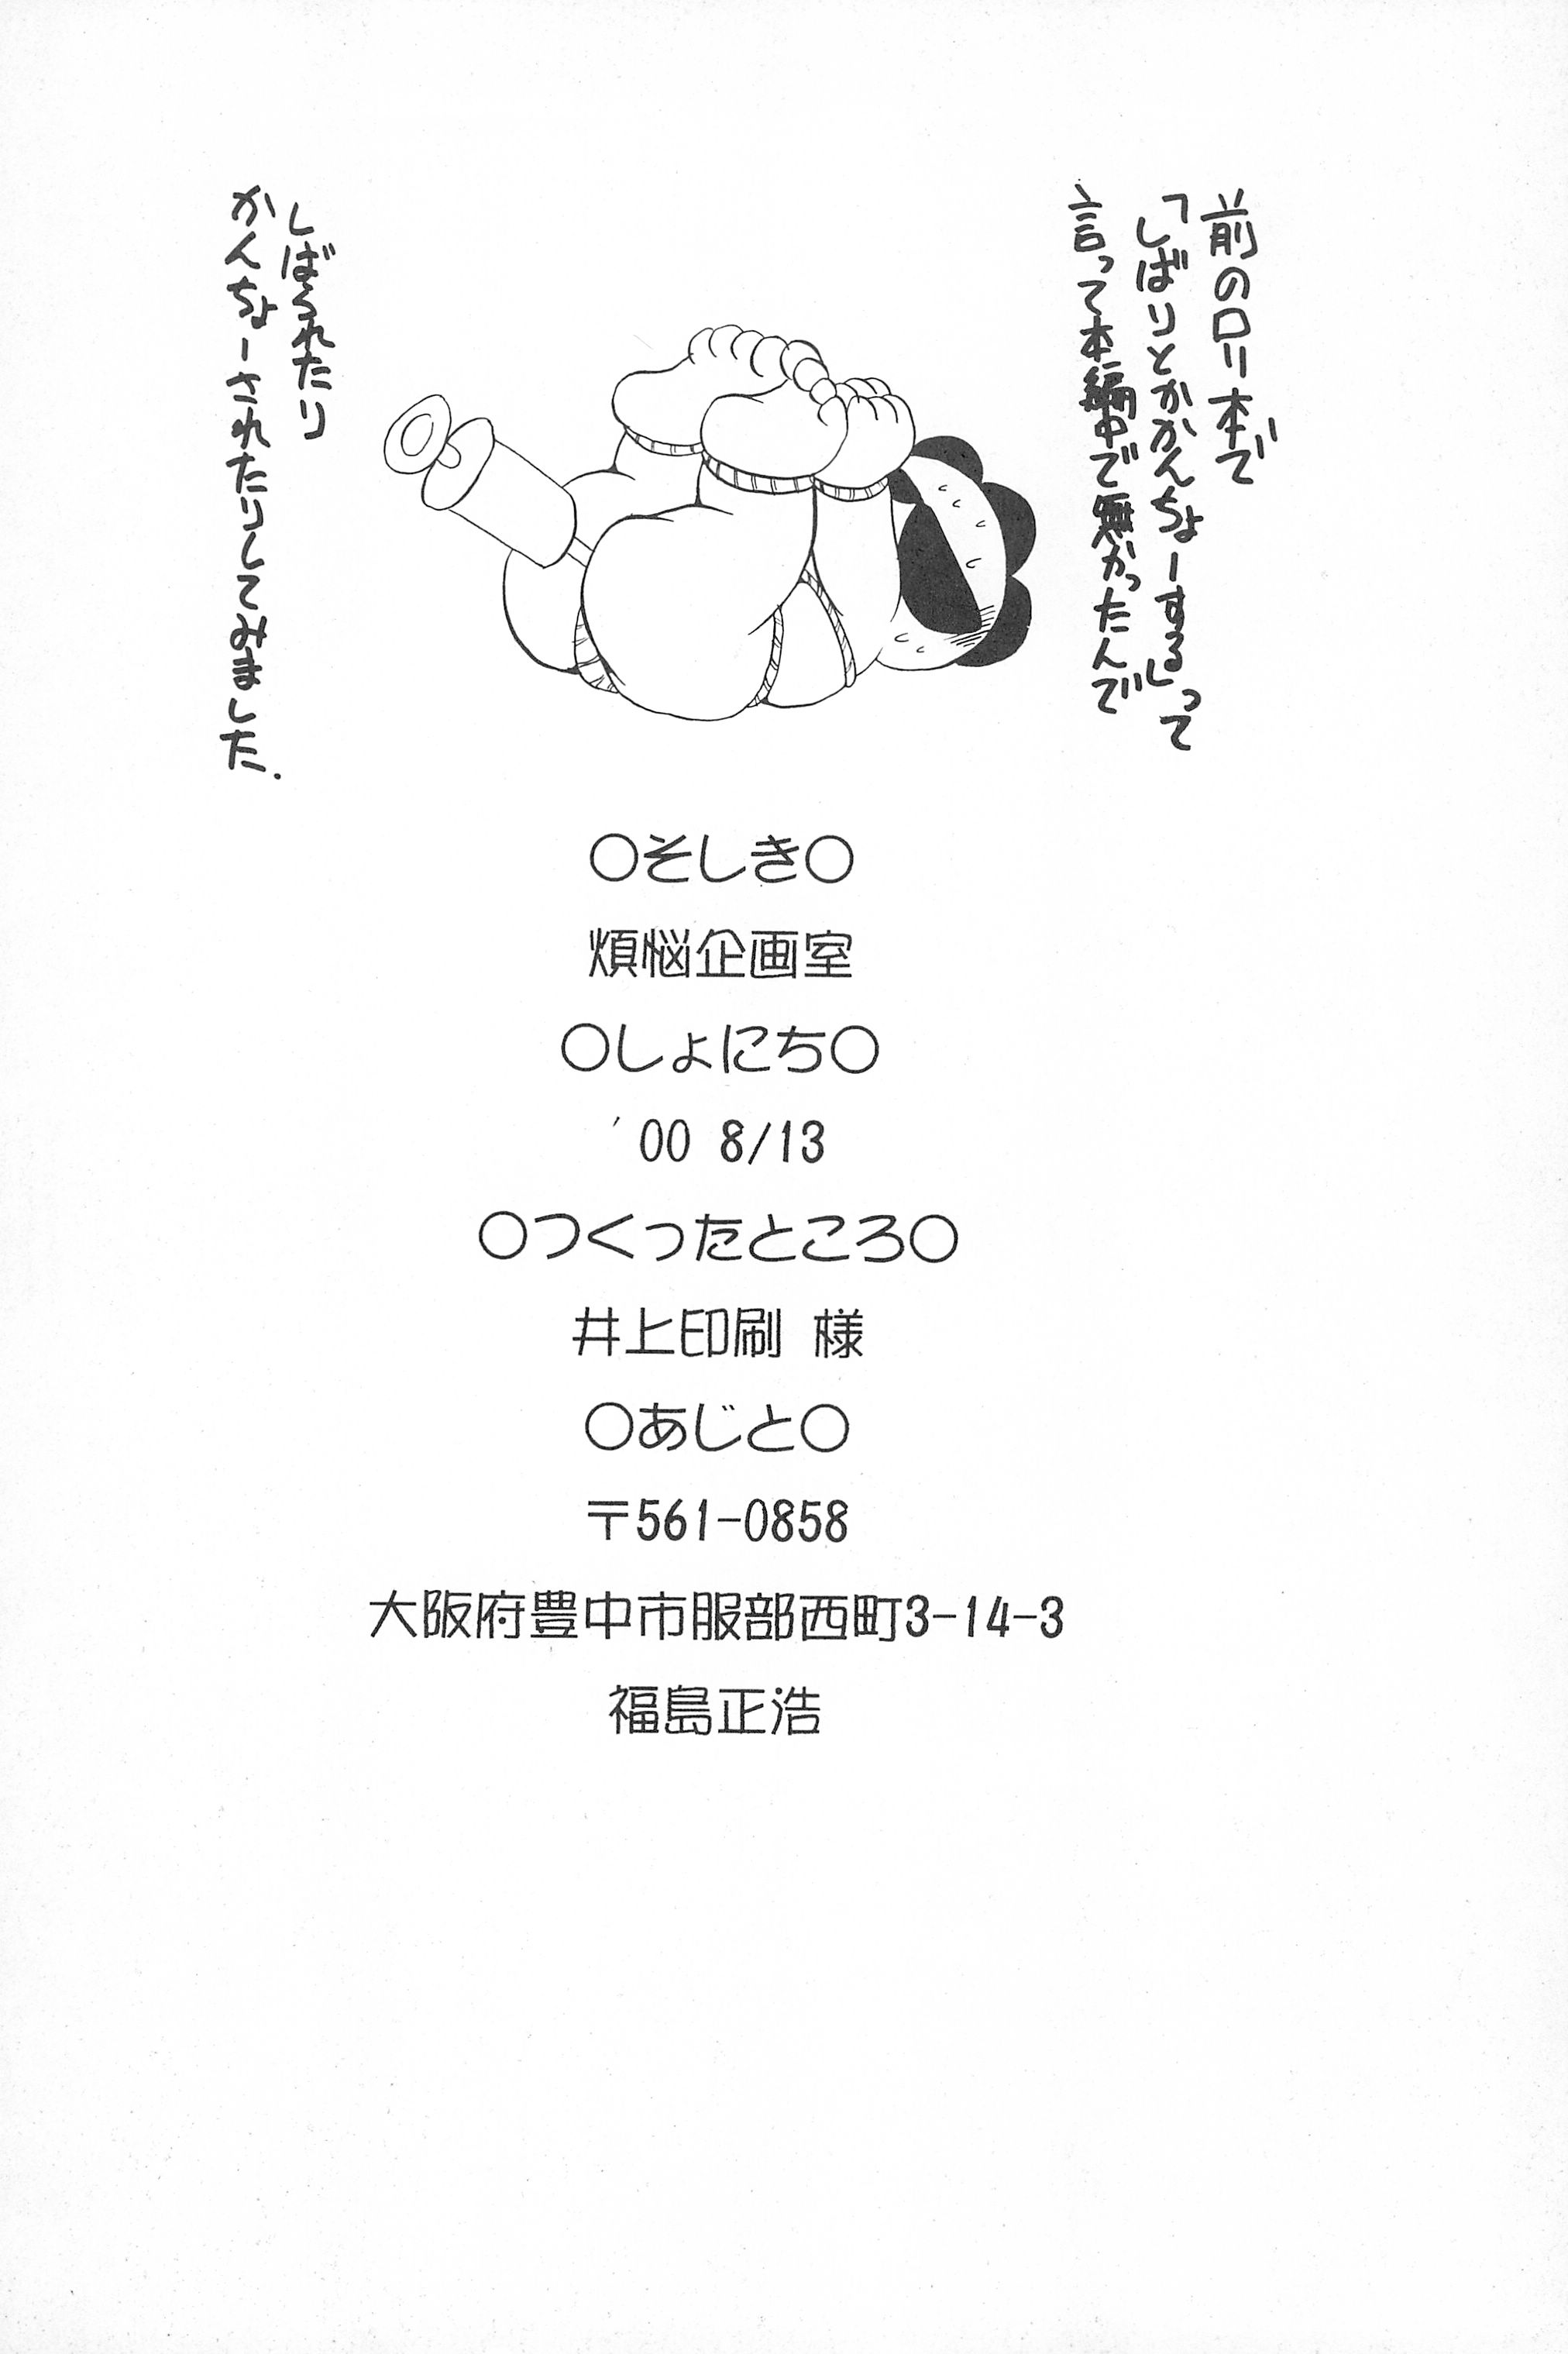 前のロリ本で
「しばりとかかんちょーする」って
言って本編中で無かったんで
しばられたり
かんちょーされたりしてみました.
○そしき○
煩悩企画室
○しょにち○
'00 8/13
○つくったところ○
井上印刷 様
○あじと○
〒561-0858
大阪府豊中市服部西町3-14-3
福島正浩